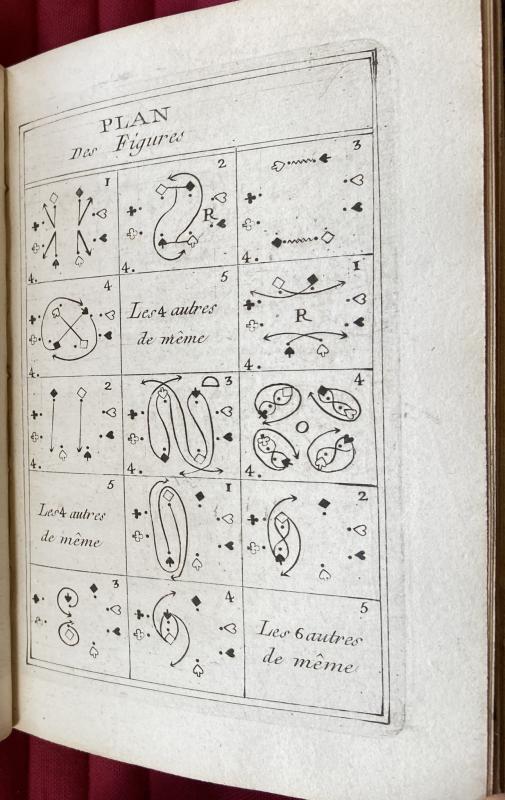 PLAN
Des Figures
1
2
R
4.
4.
3
4
4.
5
Les 4 autres
de même
1
R
4.
2
4.
3
4.
4
4.
5
Les 4 autres
de même
1
2
3
4
5
Les 6 autres
de même